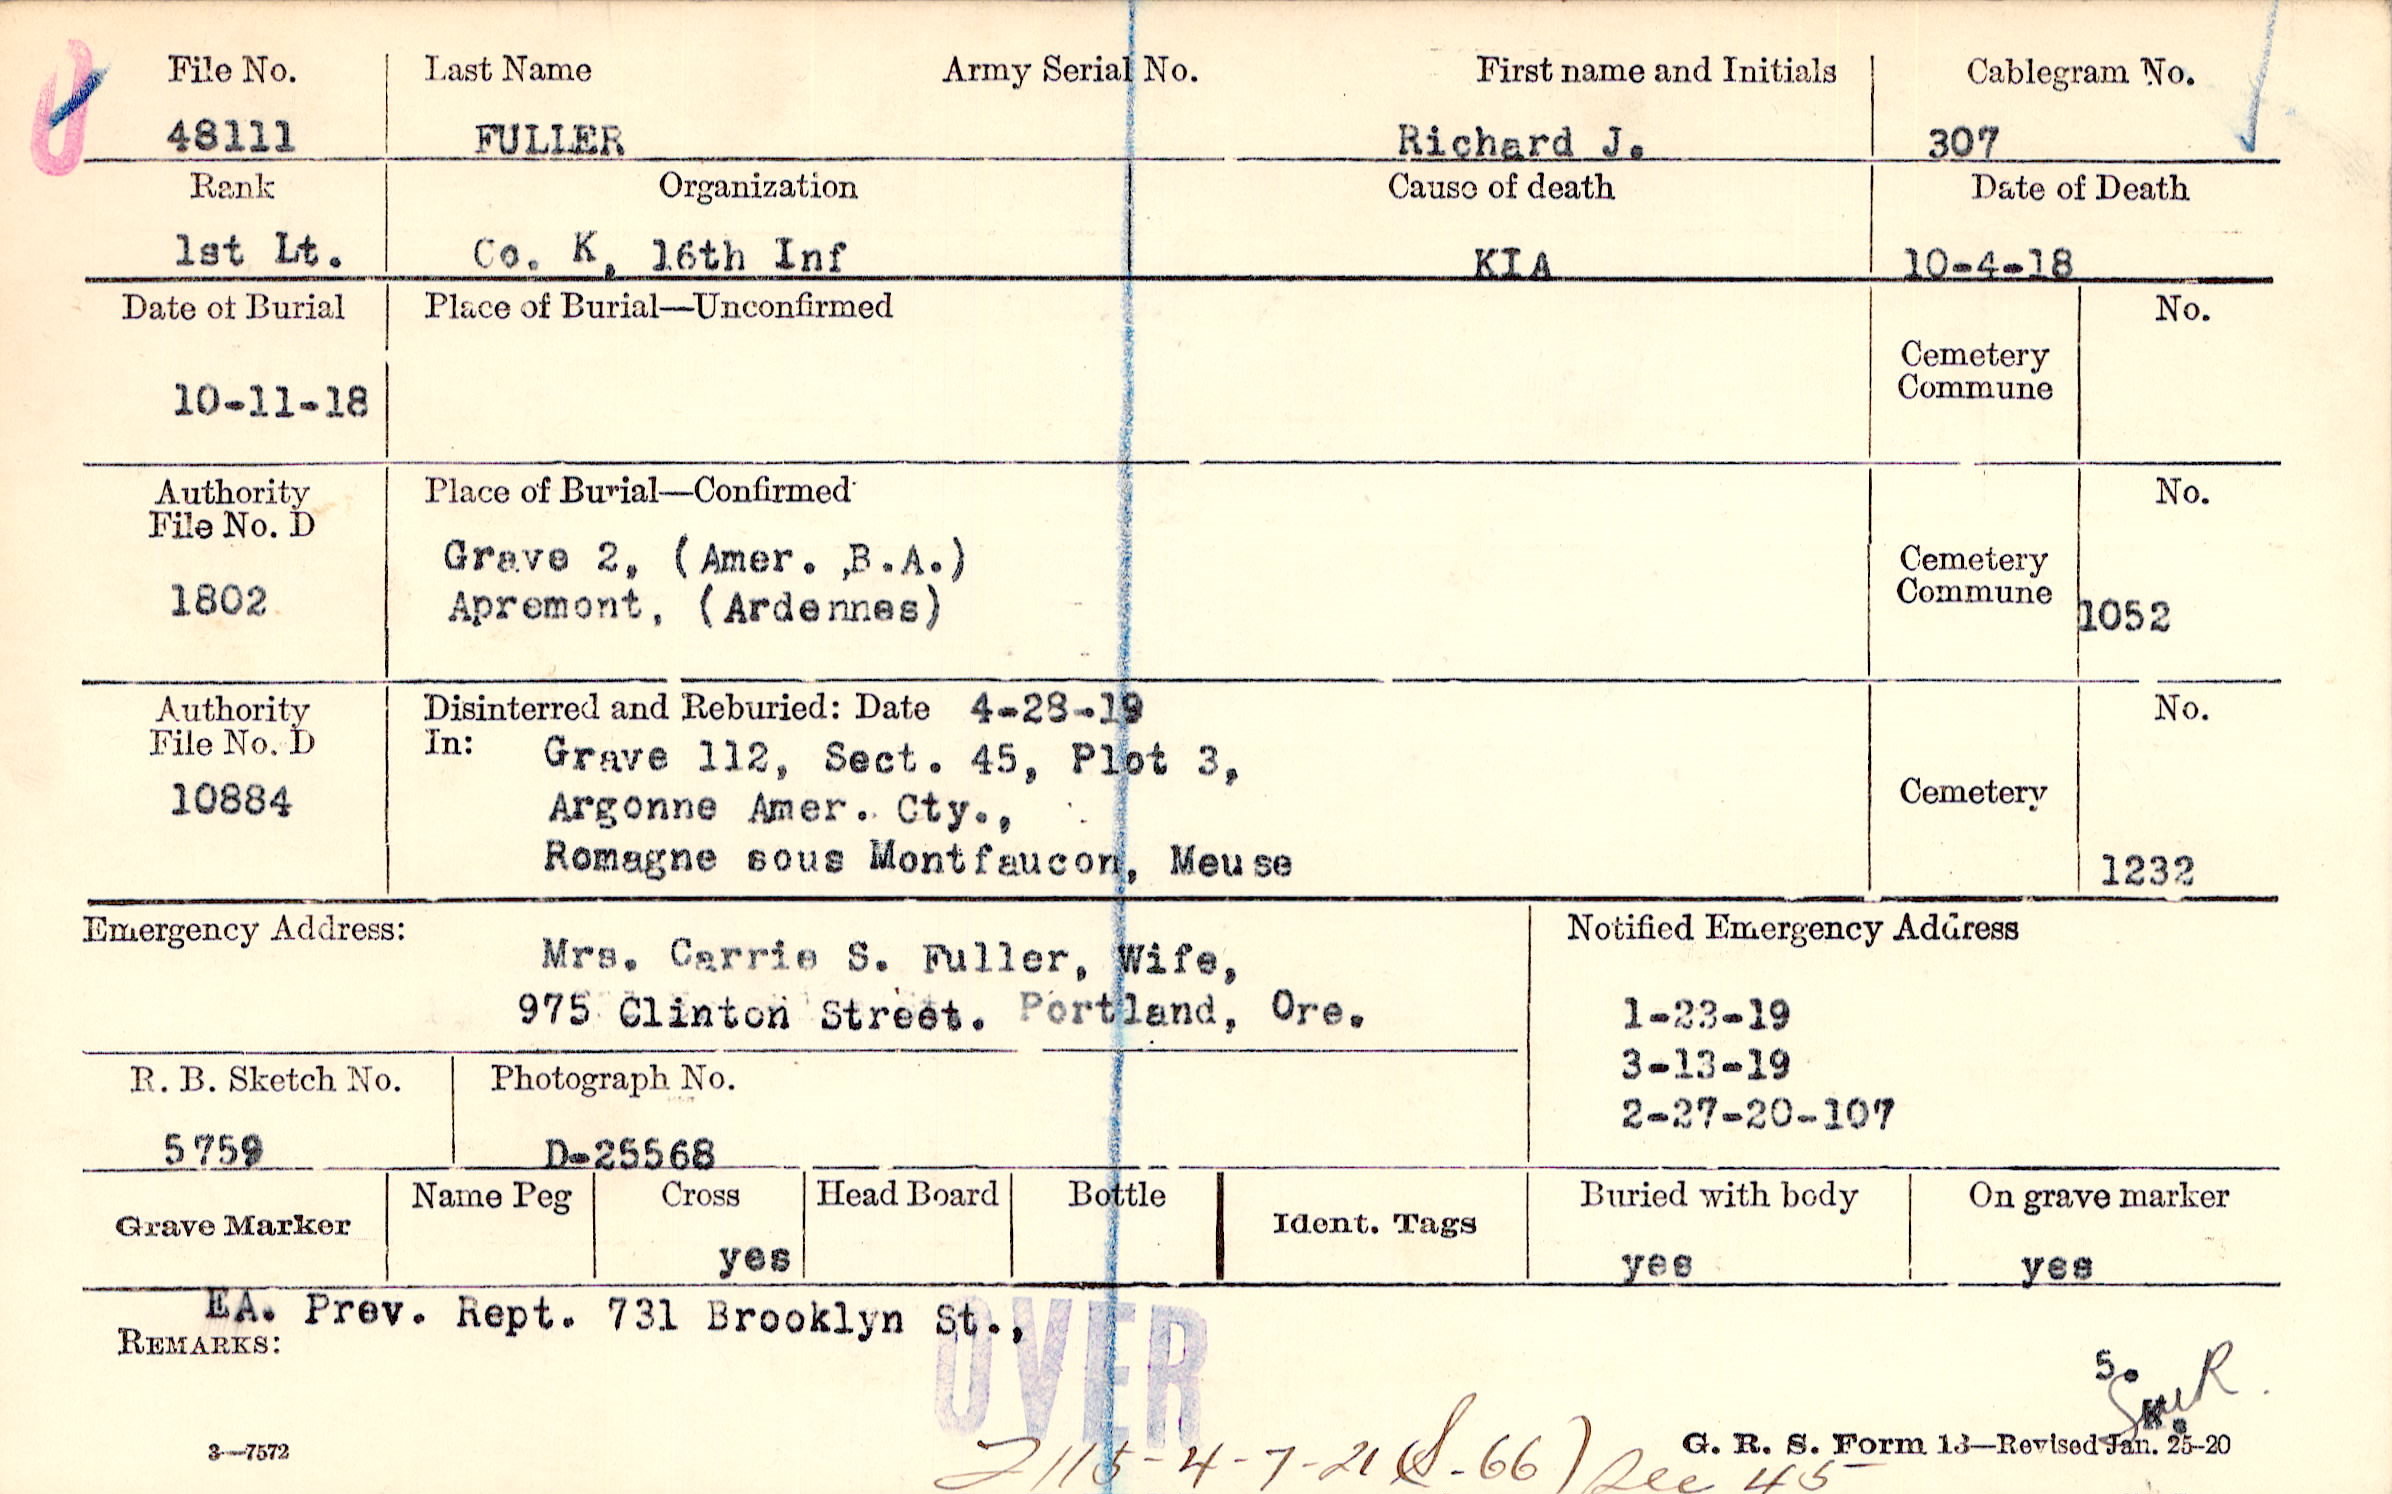 File No. Last Name Army Serial No. First name and Initials Cablegram No.
48111 FULLER Richard J. 307
Rank Organization Cause of death Date of Death
1st Lt. Co. K, 16th Inf KIA 10-4-18
Date of Burial Place of Burial—Unconfirmed No.
Cemetery
Commune
10-11-18
Authority Place of Burial—Confirmed No.
File No. D
Grave 2, (Amer. B.A.) Cemetery
1802 Apremont, (Ardennes) Commune 1052
Authority Disinterred and Reburied: Date 4-28-19 No.
File No. D In: Grave 112, Sect. 45, Plot 3,
10884 Argonne Amer. Cty., Cemetery
Romagne sous Montfaucon, Meuse 1232
Emergency Address: Notified Emergency Address
Mrs. Carrie S. Fuller, Wife,
975 Clinton Street. Portland, Ore. 1-23-19
3-13-19
R. B. Sketch No. Photograph No.
2-27-20-107
5759 D-25568
Name Peg Cross Head Board Bottle Buried with body On grave marker
Grave Marker Ident. Tags
yes yes yes
EA. Prev. Rept. 731 Brooklyn St.,
REMARKS:
OVER
5.
K.
3—7572 G. R. S. Form 13—Revised Jan. 25-20
2115-4-7-21 (S-66) Sec 45